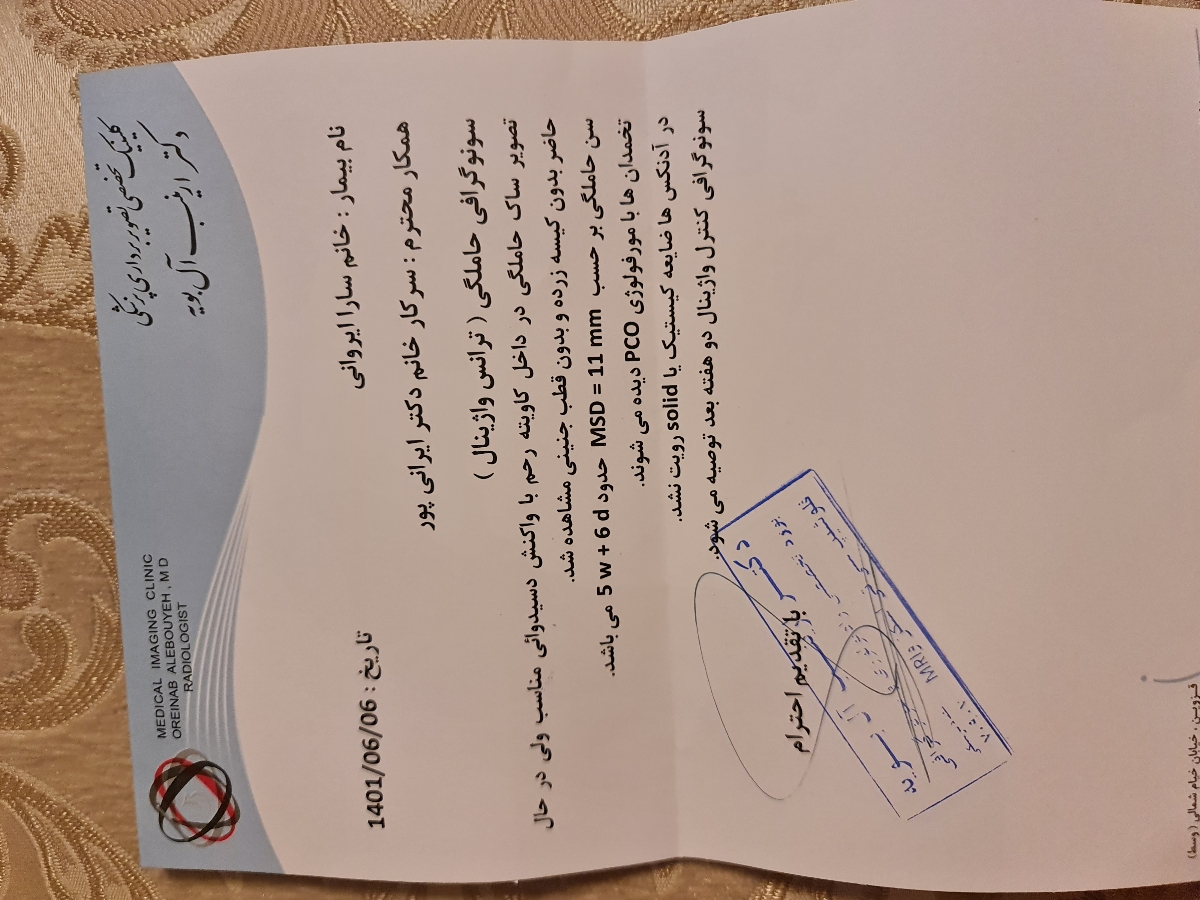 کلینیک تخصصی تصویربرداری پزشکی
دکتر ارینب آل بویه
MEDICAL IMAGING CLINIC
OREINAB ALEBOUYEH, M D
RADIOLOGIST
نام بیمار : خانم سارا ایروانی
تاریخ : 1401/06/06
همکار محترم : سرکار خانم دکتر ایرانی پور
سونوگرافی حاملگی ( ترانس واژینال )
تصویر ساک حاملگی در داخل کاویته رحم با واکنش دسیدوائی مناسب ولی در حال
حاضر بدون کیسه زرده و بدون قطب جنینی مشاهده شد.
سن حاملگی بر حسب MSD = 11 mm حدود 5 w + 6 d می باشد.
تخمدان ها با مورفولوژی PCO دیده می شوند.
در آدنکس ها ضایعه کیستیک یا solid رویت نشد.
سونوگرافی کنترل واژینال دو هفته بعد توصیه می شود.
با تقدیم احترام
دکتر آل بویه
MRI
قزوین ، خیابان خیام شمالی ( وسط)